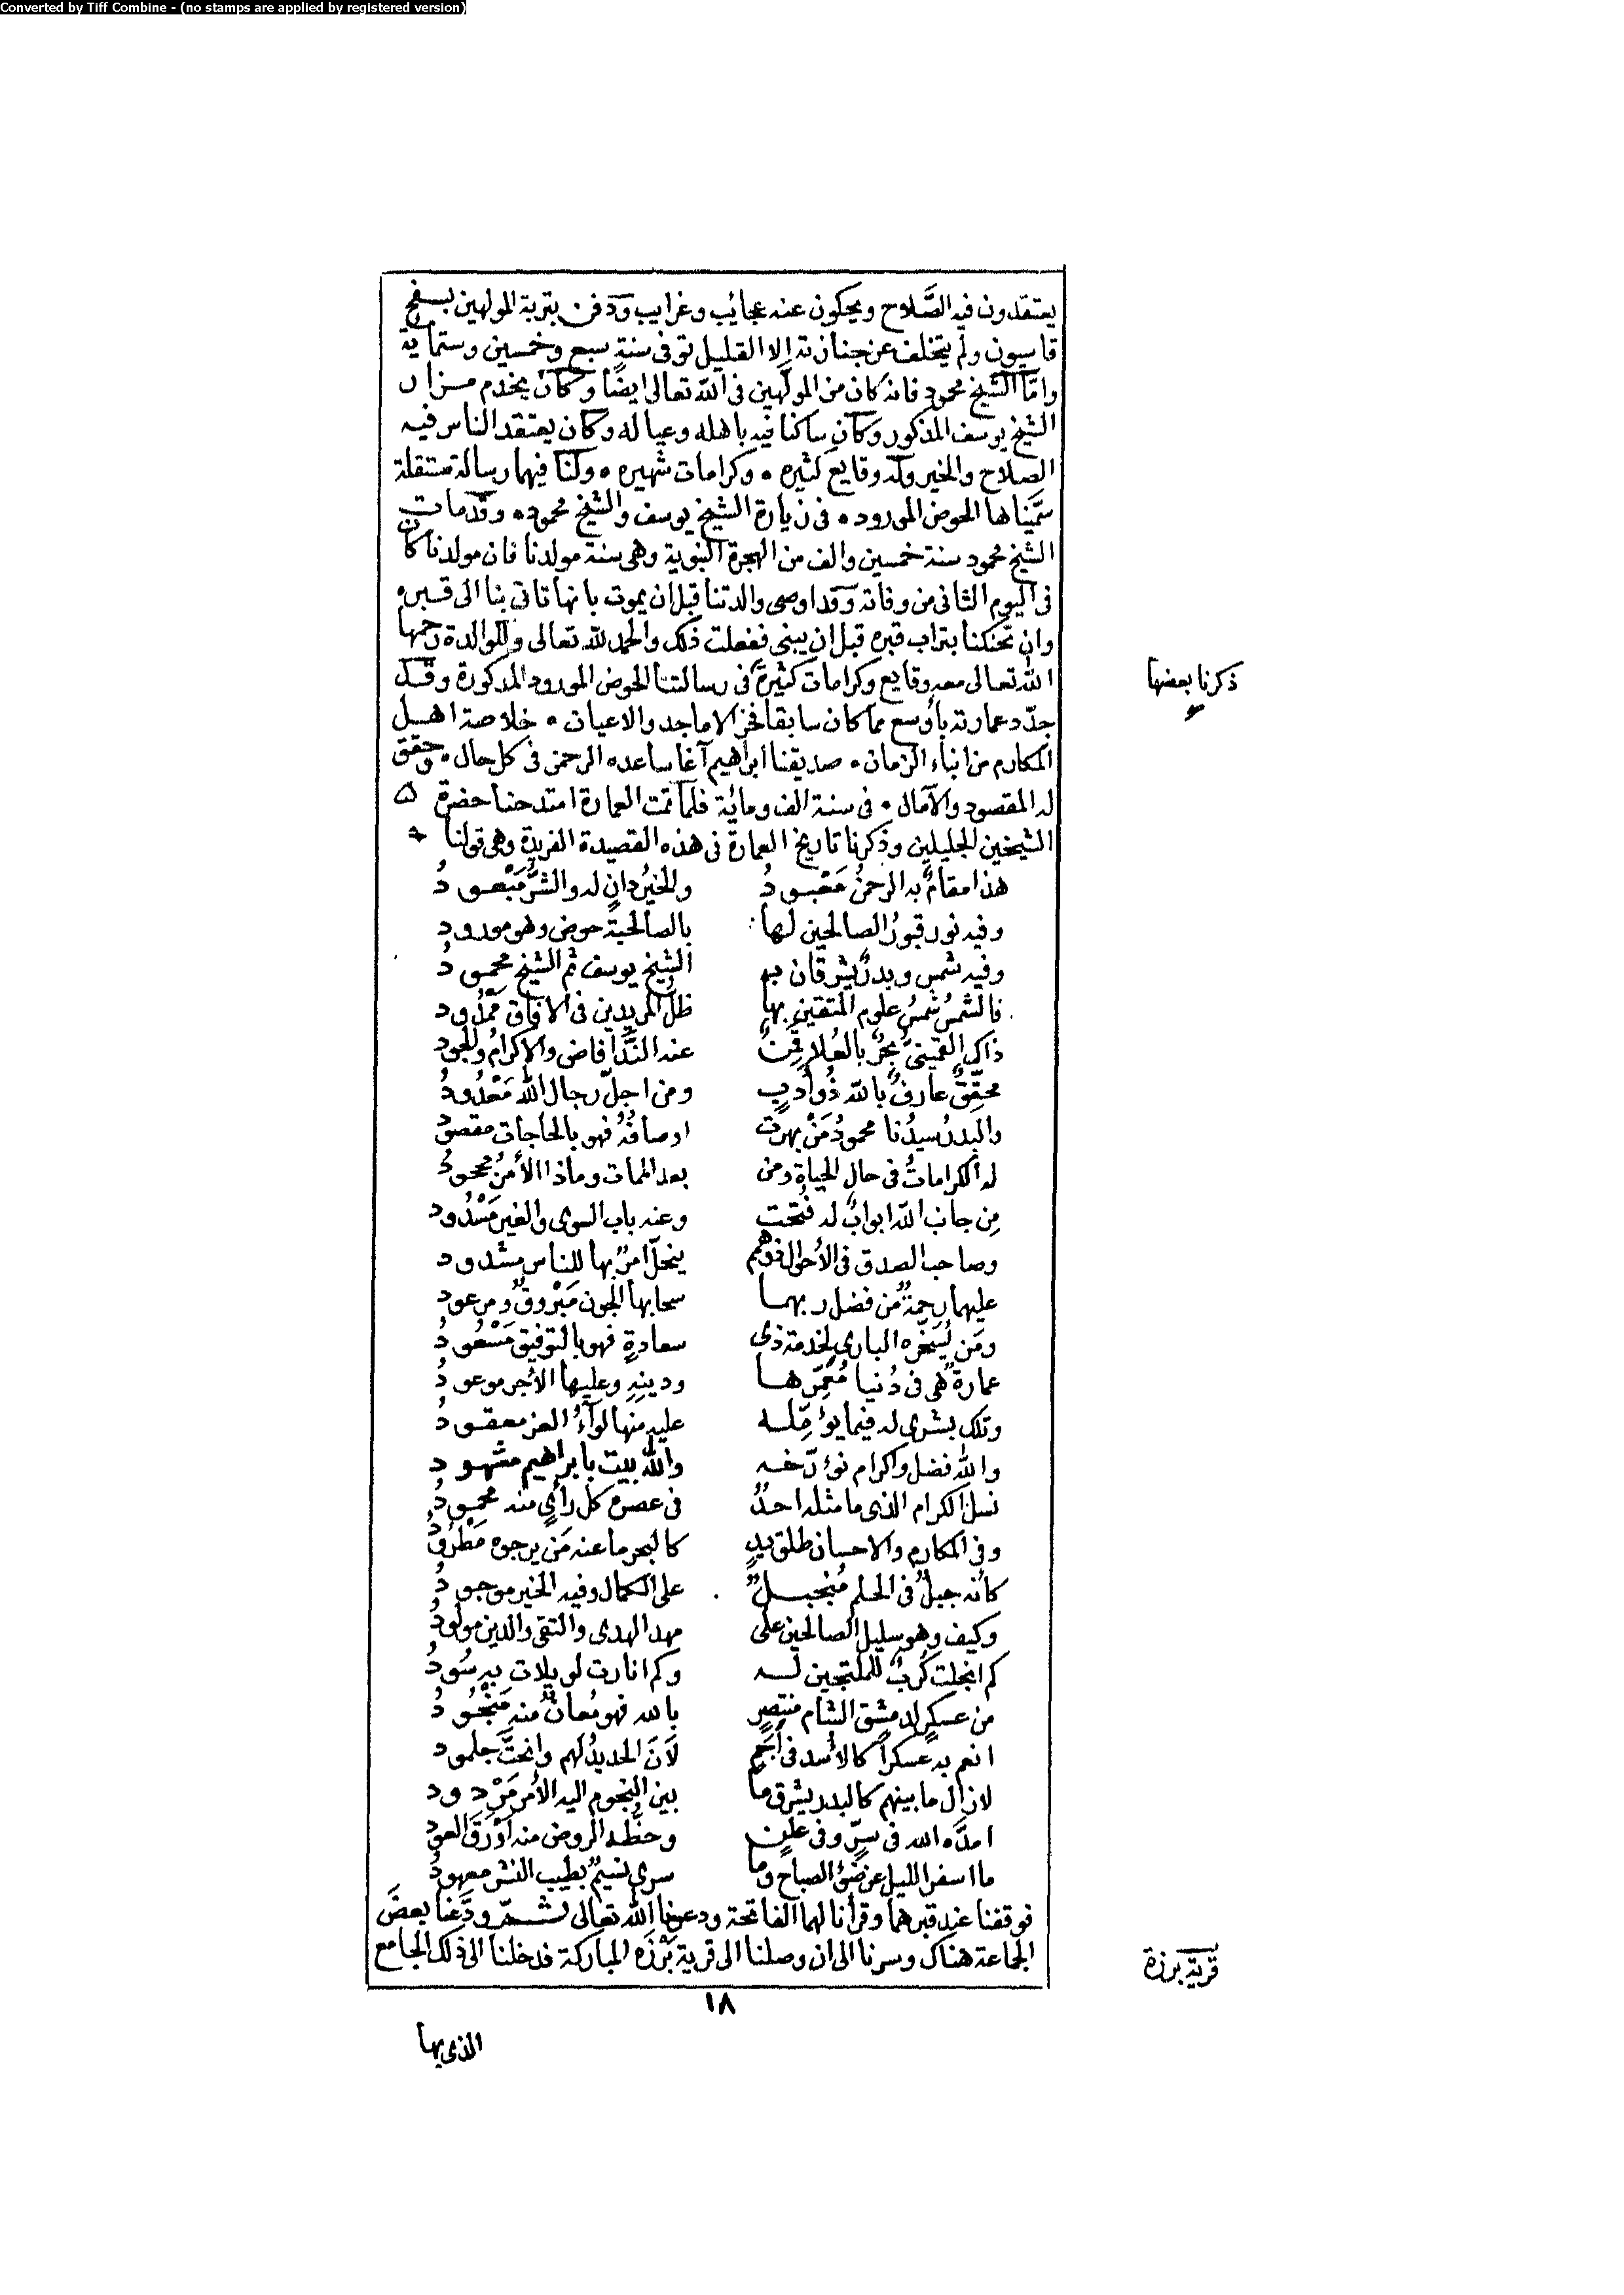 Converted by Tiff Combine - (no stamps are applied by registered version)
يعتقدون فيه الصَّلاح ويحكون عنه عجائب وغرايب ودفن بتربة المولهين بسفح
قاسيون ولم يتخلف عن جنازته إلا القليل توفى سنة سبع وخمسين وستماية
وامّا الشيخ محمود فانه كان من المولهين فى الله تعالى ايضا وكان يخدم مزار
الشيخ يوسف المذكور وكان ساكنا فيه باهله وعياله وكان يعتقد الناس فيه
الصلاح والخير وله وقايع كثيره • وكرامات شهيره • ولنا فيهما رسالة مستقلة
سمّيناها الحوض المورود • فى زيارة الشيخ يوسف والشيخ محمود • وقد مات
الشيخ محمود سنة خمسين والف من الهجرة النبوية وهى سنة مولدنا فان مولدنا كان
فى اليوم الثانى من وفاته وقد اوصى والدتنا قبل ان يموت بانها تاتى بنا الى قبره
وان تحنكنا بتراب قبره قبل ان يبنى ففعلت ذلك والحمد لله تعالى وللوالدة رحمها
الله تعالى معه وقايع وكرامات كثيرة فى رسالتنا الحوض المورود المذكورة وقد
ذكرنا بعضها
جدّد عمارته بأوسع مما كان سابقا فخر الاماجد والاعيان • خلاصة اهل
المكارم من ابناء الزمان • صديقنا ابراهيم آغا ساعده الرحمن فى كل حال • وحقق
له المقصود والآمال • فى سنة الف ومائة فلما تمت العمارة امتدحنا حضرة
الشيخين الجليلين وذكرنا تاريخ العمارة فى هذه القصيدة الفريدة وهى قولنا
هذا مقامٌ به الرحمنُ مَعْبودُ والخيرُ دانٍ له والشرُّ مَبْعودُ
وفيه نور قبورُ الصالحين لها بالصالحية حوض وهو مورود
وفيه شمس وبدرٌ يشرقان به الشيخ يوسف ثم الشيخ محمودُ
فالشمسُ شمسُ علوم المتقين بها ظلُّ المريدين فى الافاق مَمْدُود
ذاك القمينىّ بحرٌ بالعُلا قمِنٌ عند النَّدا فاض والاكرامُ والجود
محقّقٌ عارفٌ بالله ذُو أدبٍ ومن اجلّ رجال الله مَعْدُودُ
والبدرُ سيدُنا محمودُ مَنْ بهرت اوصافُهُ فهو بالحاجات مقصودُ
له الكراماتُ فى حال الحياة ومن بعد الممات وماذا الأمرُ مجحودُ
مِن جانب الله ابوابٌ له فُتحت وعنه باب السوى والغير مَسْدُود
وصاحب الصدق فى الأحوال ينحلّ امرٌ بها للناس مشدود
عليهما رحمةٌ من فضل ربهما سحابها الجون مَبْروقٌ ومرعود
ومَن يُسَخّره البارى لخدمة ذى سعادةٍ فهو بالتوفيق مَسْعُودُ
عمارةٌ هى فى دُنيا مُعَمِّرها ودينِهِ وعليها الأجر موعودُ
وتلك بشرى له فيما يؤمّله عليه منها لوآءُ العز معقودُ
والله فضل واكرام نؤرّخه والله بيت بابراهيم مشهود
نسل الكرام الذى ما مثله احدٌ فى عصره كل رأىٍ منه محمودُ
وفى المكارم والاحسان طلق يدٍ كالبحر ما عنه مَن يرجوه مَطْرُودُ
كأنه جبلٌ فى الحلم مُنجبلٌ على الكمال وفيه الخير موجودُ
وكيف وهو سليل الصالحين على مهد الهدى والتقى والدين مولودُ
كم انجلت كُرَبٌ للملتجين له وكم انارت لويلات به سُودُ
من عسكرٍ لدمشق الشام منتصرٍ بالله فهو مُعانٌ منه مَنْجُودُ
انعم به عسكراً كالأسد فى أجم لاَنَ الحديدُ لهم وانحتَّ جلمود
لازال ما بينهم كالبدر يشرق ما بين النجوم اليه الأمر مَرْدود
امدّه الله فى سِرٍّ وفى علنٍ وحظّه الروض منه أوْرَقَ العود
ما اسفر الليل عن ضوْء الصباح وما سرى نسيمٌ بطيب النشر معهودُ
فوقفنا عند قبرهما وقرأنا لهما الفاتحة ودعونا الله تعالى ثمّ ودَّعنا بعضَ
الجماعة هناك وسرنا الى ان وصلنا الى قرية بَرْزَه المباركة فدخلنا الى ذلك الجامع
قرية برزة
١٨
الذى بها